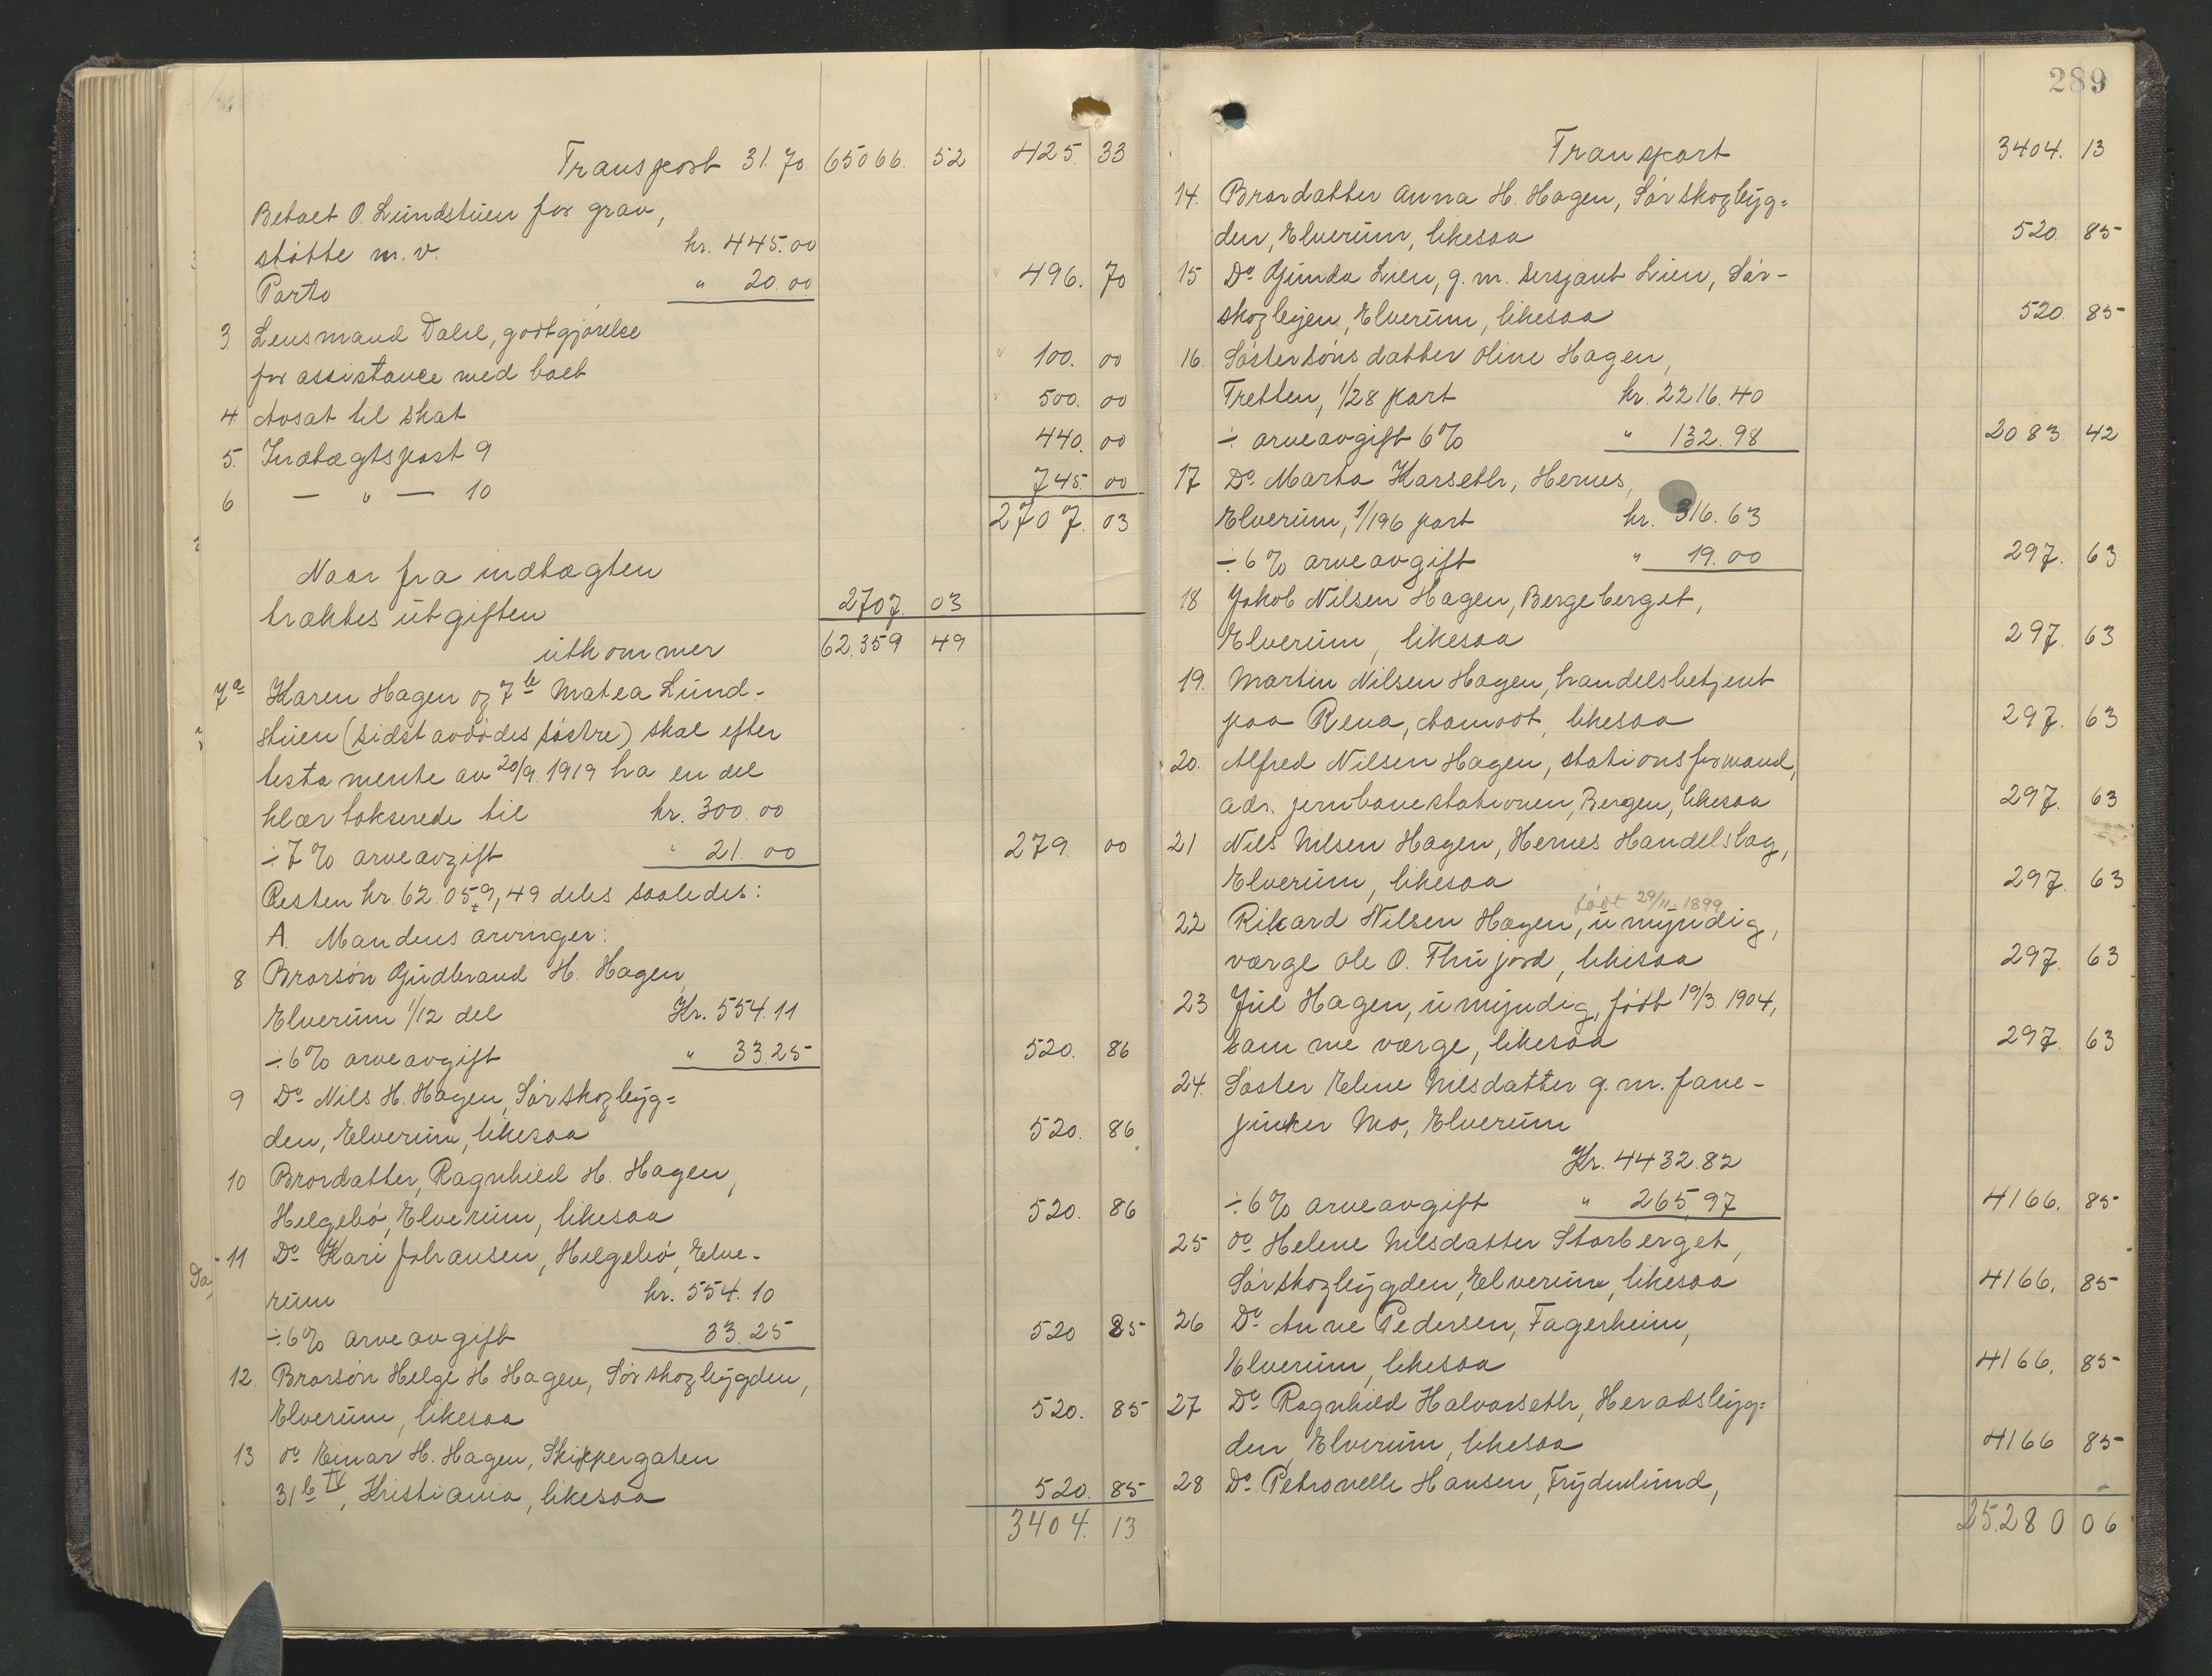 Transport 31.70 65066. 52 425. 33
Betalt O. Lundstuen for grav,
støtte m.v. kr. 445.00
Porto " 20.00 496. 70
3 Lensmand Dahl, godtgjørelse
for assistance med boet 100. 00
4 Avsat til skat 500. 00
5. Indtægtspost 9 440. 00
6 — " — 10 745. 00
2707. 03
Naar fra indtægten
træktes utgiften 2707. 03
utkommer 62.359 49
7a Karen Hagen og 7b Matea Lund-
stuen (sidst avdødes søstre) skal efter
testamente av 20/9 1919 ha en del
klær takserede til kr. 300.00
÷ 7% arveavgift " 21.00 279. 00
Resten kr. 62.059,49 deles saaledes:
A. Mandens arvinger:
8 Brorsøn Gudbrand H. Hagen,
Elverum 1/12 del Kr. 554.11
÷ 6% arveavgift " 33.25 520. 86
9 Do Nils H. Hagen, Sørskogbyg=
den, Elverum, likesaa 520. 86
10 Brordatter, Ragnhild H. Hagen,
Helgebø, Elverum, likesaa 520. 86
11 Do Kari Johansen, Helgebø, Elve-
rum kr. 554.10
÷ 6% arveavgift 33.25 520 85
12. Brorsøn Helge H. Hagen, Sørskogbygden,
Elverum, likesaa 520. 85
13 do Einar H. Hagen, Skippergaten
31b IV, Kristiania, likesaa 520. 85
3404. 13
289
Transport 3404. 13
14. Brordatter Anna H. Hagen, Sørskogbyg=
den, Elverum, likesaa 520. 85
15 Do Gunda Lien, g.m. sersjant Lien, Sør-
skogbyen, Elverum, likesaa 520. 85
16. Søstersøns datter Oline Hagen,
Tretten, 1/28 part kr. 2216.40
÷ arveavgift 6% " 132.98 2083. 42
17 Do Marta Karseth, Hernes,
Elverum, 1/196 part kr. 316.63
÷ 6% arveavgift " 19.00 297. 63
18 Jakob Nilsen Hagen, Bergeberget,
Elverum, likesaa 297. 63
19. Martin Nilsen Hagen, handelsbetjent
paa Rena, Aamoot, likesaa 297. 63
20. Alfred Nilsen Hagen, stationsformand,
adr. jernbanestationen, Bergen, likesaa 297. 63
21 Nils Nilsen Hagen, Hernes Handelslag,
Elverum, likesaa 297. 63
født 29/11. 1899
22 Rikard Nilsen Hagen, umyndig,
værge Ole O. Thujord, likesaa 297. 63
23 Jul Hagen, umyndig, født 19/3 1904,
samme værge, likesaa 297. 63
24. Søster Eline Nilsdatter g.m. fane-
junker Mo, Elverum
Kr. 4432.82
÷ 6% arveavgift " 265.97 4166. 85
25 do Helene Nilsdatter Storberget,
Sørskogbygden, Elverum, likesaa 4166. 85
26 Do Anne Pedersen, Fagerheim,
Elverum, likesaa 4166. 85
27 Do Ragnhild Halvorseth, Heradsbyg=
den, Elverum, likesaa 4166 85
28 Do Petronelle Hansen, Frydenlund,
25.280 06